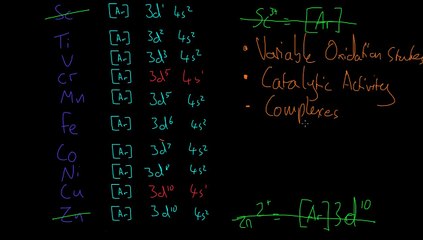 Sc [Ar] 3d¹ 4s²
Ti [Ar] 3d² 4s²
V [Ar] 3d³ 4s²
Cr [Ar] 3d⁵ 4s¹
Mn [Ar] 3d⁵ 4s²
Fe [Ar] 3d⁶ 4s²
Co [Ar] 3d⁷ 4s²
Ni [Ar] 3d⁸ 4s²
Cu [Ar] 3d¹⁰ 4s¹
Zn [Ar] 3d¹⁰ 4s²
Sc³⁺ = [Ar]
• Variable Oxidation States
• Catalytic Activity
• Complexes
Zn²⁺ = [Ar] 3d¹⁰